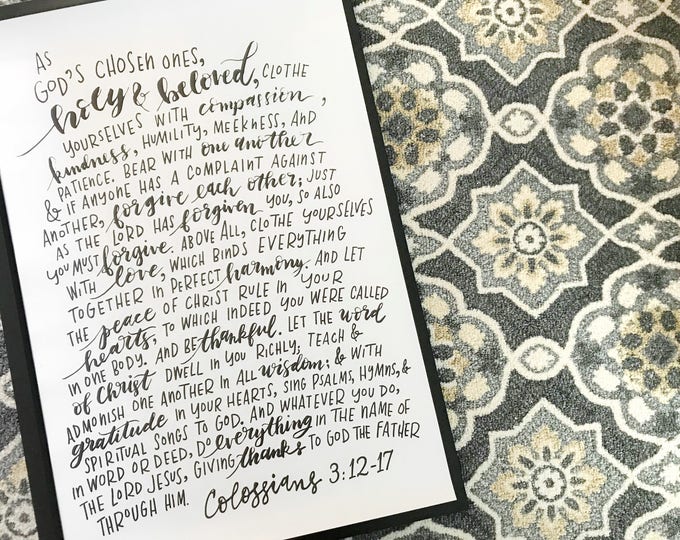 AS
GOD'S CHOSEN ONES,
holy & beloved, CLOTHE
YOURSELVES WITH compassion,
kindness, HUMILITY, MEEKNESS, AND
PATIENCE. BEAR WITH one another
& IF ANYONE HAS A COMPLAINT AGAINST
ANOTHER, forgive each other; JUST
AS THE LORD HAS forgiven YOU, SO ALSO
YOU MUST forgive. ABOVE ALL, CLOTHE YOURSELVES
WITH love, WHICH BINDS EVERYTHING
TOGETHER IN PERFECT harmony. AND LET
THE peace OF CHRIST RULE IN YOUR
hearts, TO WHICH INDEED YOU WERE CALLED
IN ONE BODY. AND BE thankful. LET THE word
of Christ DWELL IN YOU RICHLY, TEACH &
ADMONISH ONE ANOTHER IN ALL wisdom; & WITH
gratitude IN YOUR HEARTS, SING PSALMS, HYMNS, &
SPIRITUAL SONGS TO GOD. AND WHATEVER YOU DO,
IN WORD OR DEED, DO everything IN THE NAME OF
THE LORD JESUS, GIVING thanks TO GOD THE FATHER
THROUGH HIM. Colossians 3:12-17